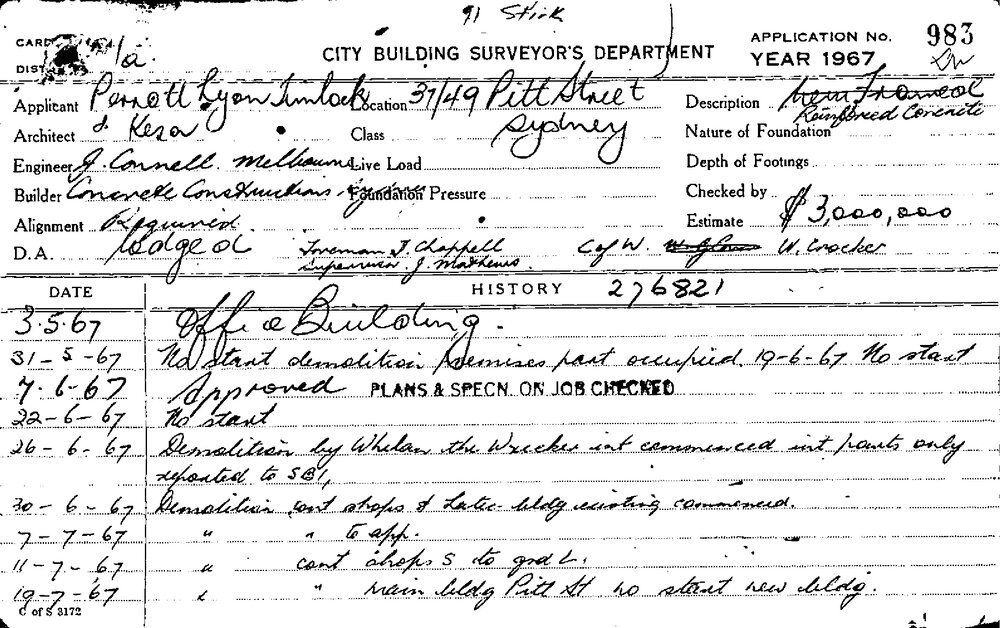 91 Stick
CARD
DIST
CITY BUILDING SURVEYOR'S DEPARTMENT
APPLICATION No. 983
YEAR 1967
Applicant Perrott Lyon Timlock & Kesa
Location 37/49 Pitt Street Sydney
Description New Framed Reinforced Concrete
Architect
Class
Nature of Foundation
Engineer J. Connell. Melbourne
Live Load
Depth of Footings
Builder Concrete Constructions
Foundation Pressure
Checked by
Alignment Required
Estimate $3,000,000
D.A. lodged
Foreman T. Chappell
C of W. W. Crocker
Supervisor J. Mathews
DATE HISTORY 276821
3.5.67 Office Building.
31-5-67 No start demolition premises part occupied. 19-6-67 No start
7.6.67 Approved PLANS & SPECN. ON JOB CHECKED
22-6-67 No start
26-6-67 Demolition by Whelan the Wrecker int commenced int parts only
reported to SBI,
30-6-67 Demolition cont shops & bldg existing commenced.
7-7-67 " " to app.
11-7-67 " cont shops S to grd L.
19-7-67 " " main bldg Pitt St no start new bldg.
C of S 3172